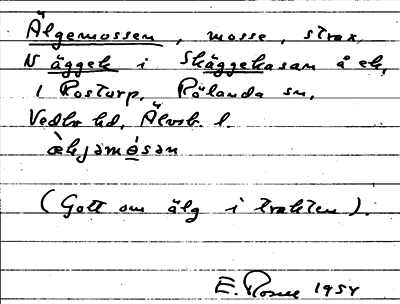 Älgemossen, mosse, strax
N äggek i Skäggekasan å ek,
1 Rostorp, Rölanda sn,
Vedbo hd, Älvsb. l.
(Gott om älg i trakten).
E. Rosell 195